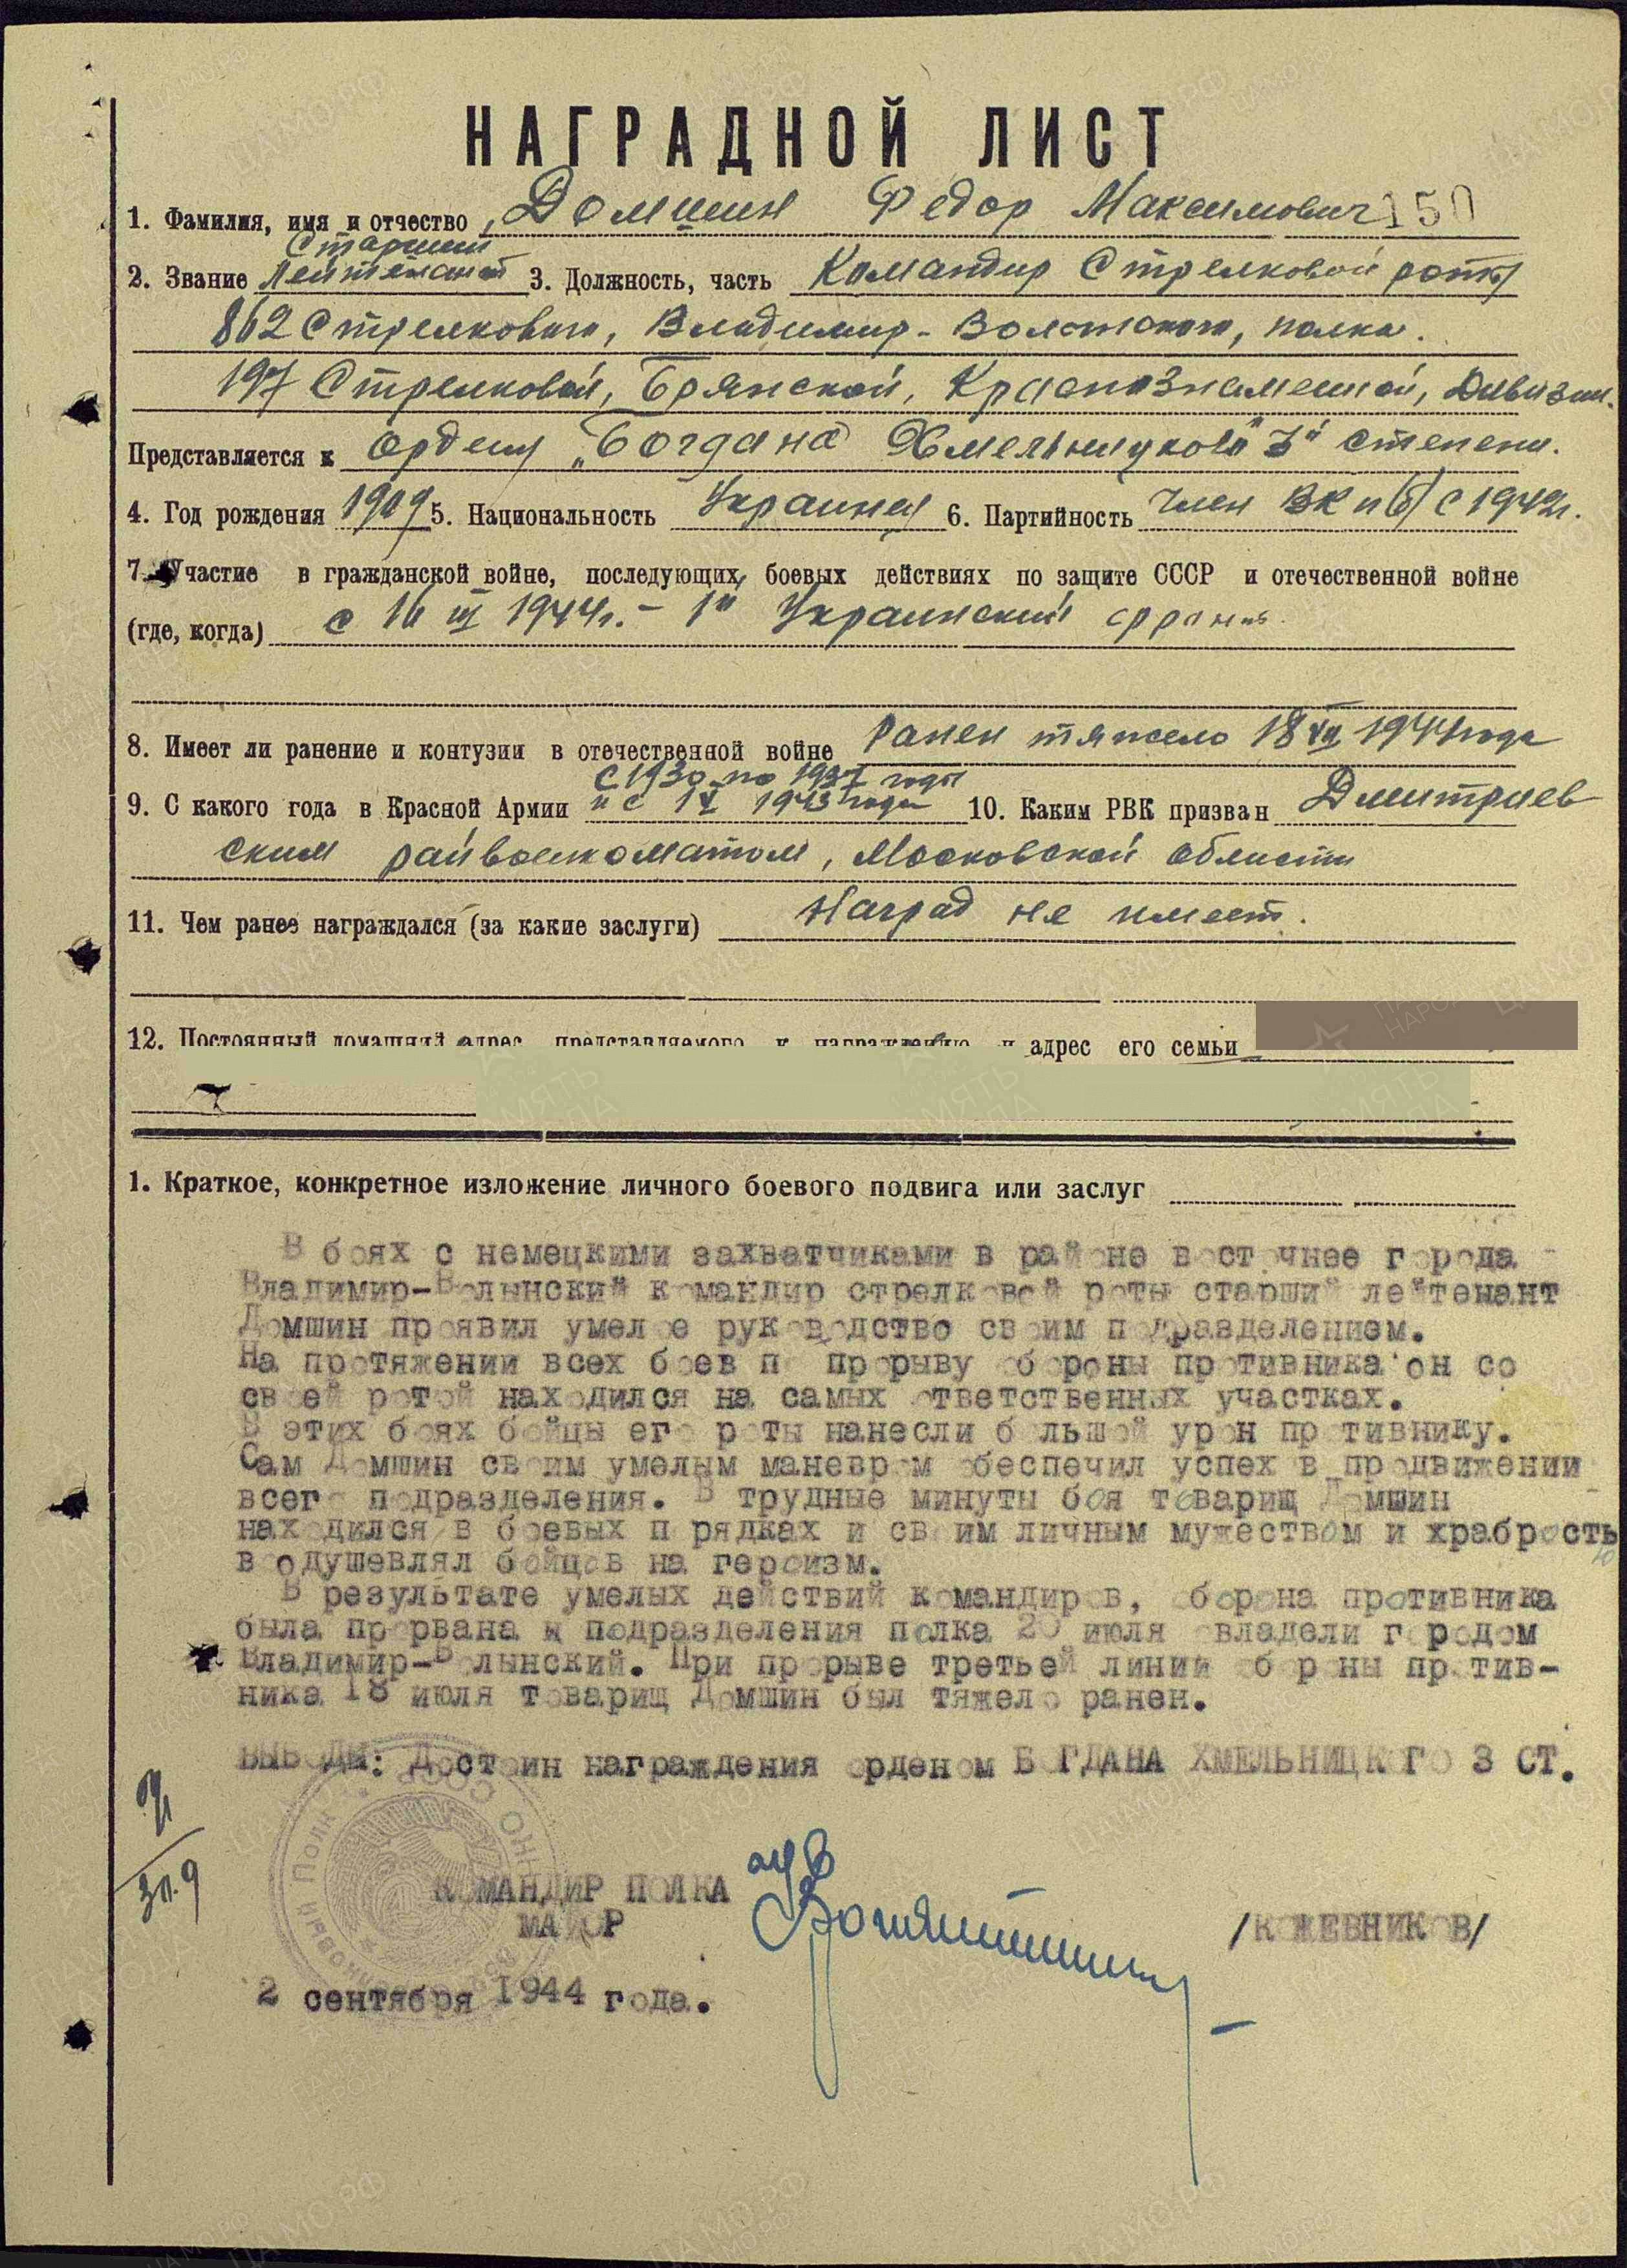 НАГРАДНОЙ ЛИСТ
1. Фамилия, имя и отчество Домшин Федор Максимович 150
Старший
2. Звание Лейтенант 3. Должность, часть Командир Стрелковой роты
862 Стрелкового, Владимир-Волынского, полка.
197 Стрелковой, Брянской, Краснознаменной, Дивизии.
Представляется к Ордену „Богдана Хмельницкого" 3й степени.
4. Год рождения 1909 5. Национальность Украинец 6. Партийность Член ВКП(б) с 1942г.
7. Участие в гражданской войне, последующих боевых действиях по защите СССР и отечественной войне
(где, когда) с 16 III 1944г. - 1й Украинский фронт.
8. Имеет ли ранение и контузии в отечественной войне Ранен тяжело 18 VII 1944 года
с 1930 по 1937 годы
9. С какого года в Красной Армии и с 1943 года 10. Каким РВК призван Дмитриев
ским райвоенкоматом, Московской области
11. Чем ранее награждался (за какие заслуги) Наград не имеет.
12. Постоянный домашний адрес представляемого к награждению и адрес его семьи
1. Краткое, конкретное изложение личного боевого подвига или заслуг
В боях с немецкими захватчиками в районе восточнее города
Владимир-Волынский командир стрелковой роты старший лейтенант
Домшин проявил умелое руководство своим подразделением.
На протяжении всех боев по прорыву обороны противника он со
своей ротой находился на самых ответственных участках.
В этих боях бойцы его роты нанесли большой урон противнику.
Сам Домшин своим умелым маневром обеспечил успех в продвижении
всего подразделения. В трудные минуты боя товарищ Домшин
находился в боевых порядках и своим личным мужеством и храбрость
ю
воодушевлял бойцов на героизм.
В результате умелых действий командиров, оборона противника
была прорвана и подразделения полка 20 июля овладели городом
Владимир-Волынский. При прорыве третьей линии обороны против-
ника 18 июля товарищ Домшин был тяжело ранен.
ВЫВОДЫ: Достоин награждения орденом БОГДАНА ХМЕЛЬНИЦКОГО 3 СТ.
КОМАНДИР ПОЛКА
МАЙОР /КОЖЕВНИКОВ/
2 сентября 1944 года.